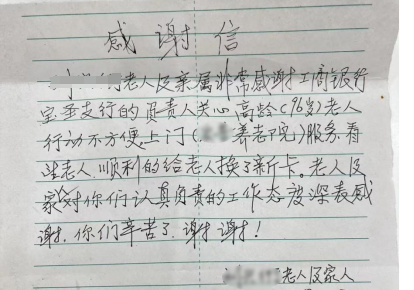 感谢信
老人及亲属非常感谢工商银行
宝垂支行的负责人关心高龄(96岁)老人
行动不方便,上门(养老院)服务,看
望老人,顺利的给老人换了新卡。老人及
家对你们认真负责的工作态度深表感
谢,你们辛苦了,谢谢谢!
老人及家人